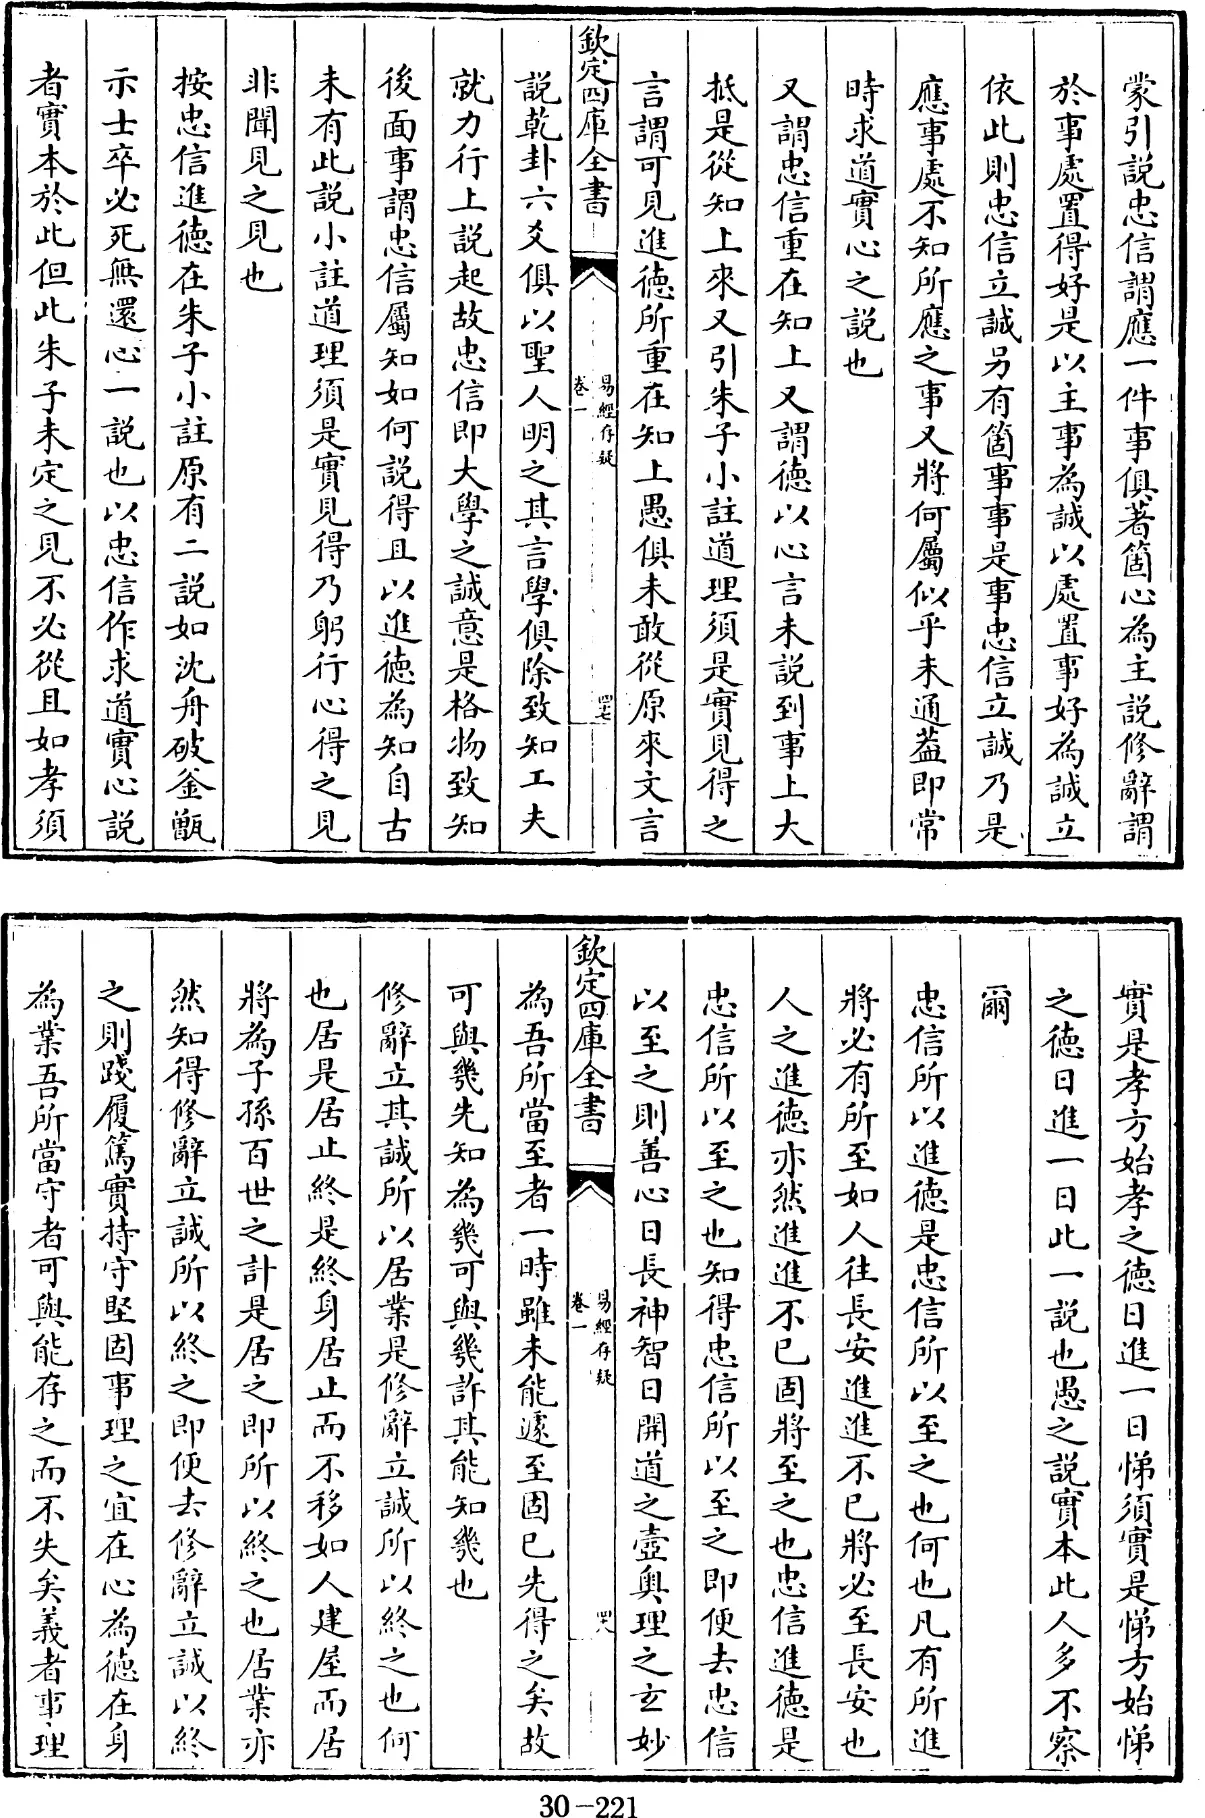 蒙引説忠信謂應一件事俱著箇心為主説修辭謂
於事處置得好是以主事為誠以處置事好為誠立
依此則忠信立誠另有箇事事是事忠信立誠乃是
應事處不知所應之事又將何屬似乎未通葢即常
時求道實心之説也
又謂忠信重在知上又謂德以心言未説到事上大
抵是從知上來又引朱子小註道理須是實見得之
言謂可見進德所重在知上愚俱未敢從原來文言
欽定四庫全書
易經存疑
卷一
四七
説乾卦六爻俱以聖人明之其言學俱除致知工夫
就力行上説起故忠信即大學之誠意是格物致知
後面事謂忠信屬知如何説得且以進德為知自古
未有此説小註道理須是實見得乃躬行心得之見
非聞見之見也
按忠信進德在朱子小註原有二説如沈舟破釜甑
示士卒必死無還心一説也以忠信作求道實心説
者實本於此但此朱子未定之見不必從且如孝須
實是孝方始孝之德日進一日悌須實是悌方始悌
之德日進一日此一説也愚之説實本此人多不察
爾
忠信所以進德是忠信所以至之也何也凡有所進
將必有所至如人往長安進進不已將必至長安也
人之進德亦然進進不已固將至之也忠信進德是
忠信所以至之也知得忠信所以至之即便去忠信
以至之則善心日長神智日開道之壼奧理之玄妙
欽定四庫全書
易經存疑
卷一
四八
為吾所當至者一時雖未能遽至固已先得之矣故
可與幾先知為幾可與幾許其能知幾也
修辭立其誠所以居業是修辭立誠所以終之也何
也居是居止終是終身居止而不移如人建屋而居
將為子孫百世之計是居之即所以終之也居業亦
然知得修辭立誠所以終之即便去修辭立誠以終
之則踐履篤實持守堅固事理之宜在心為德在身
為業吾所當守者可與能存之而不失矣義者事理
30-221